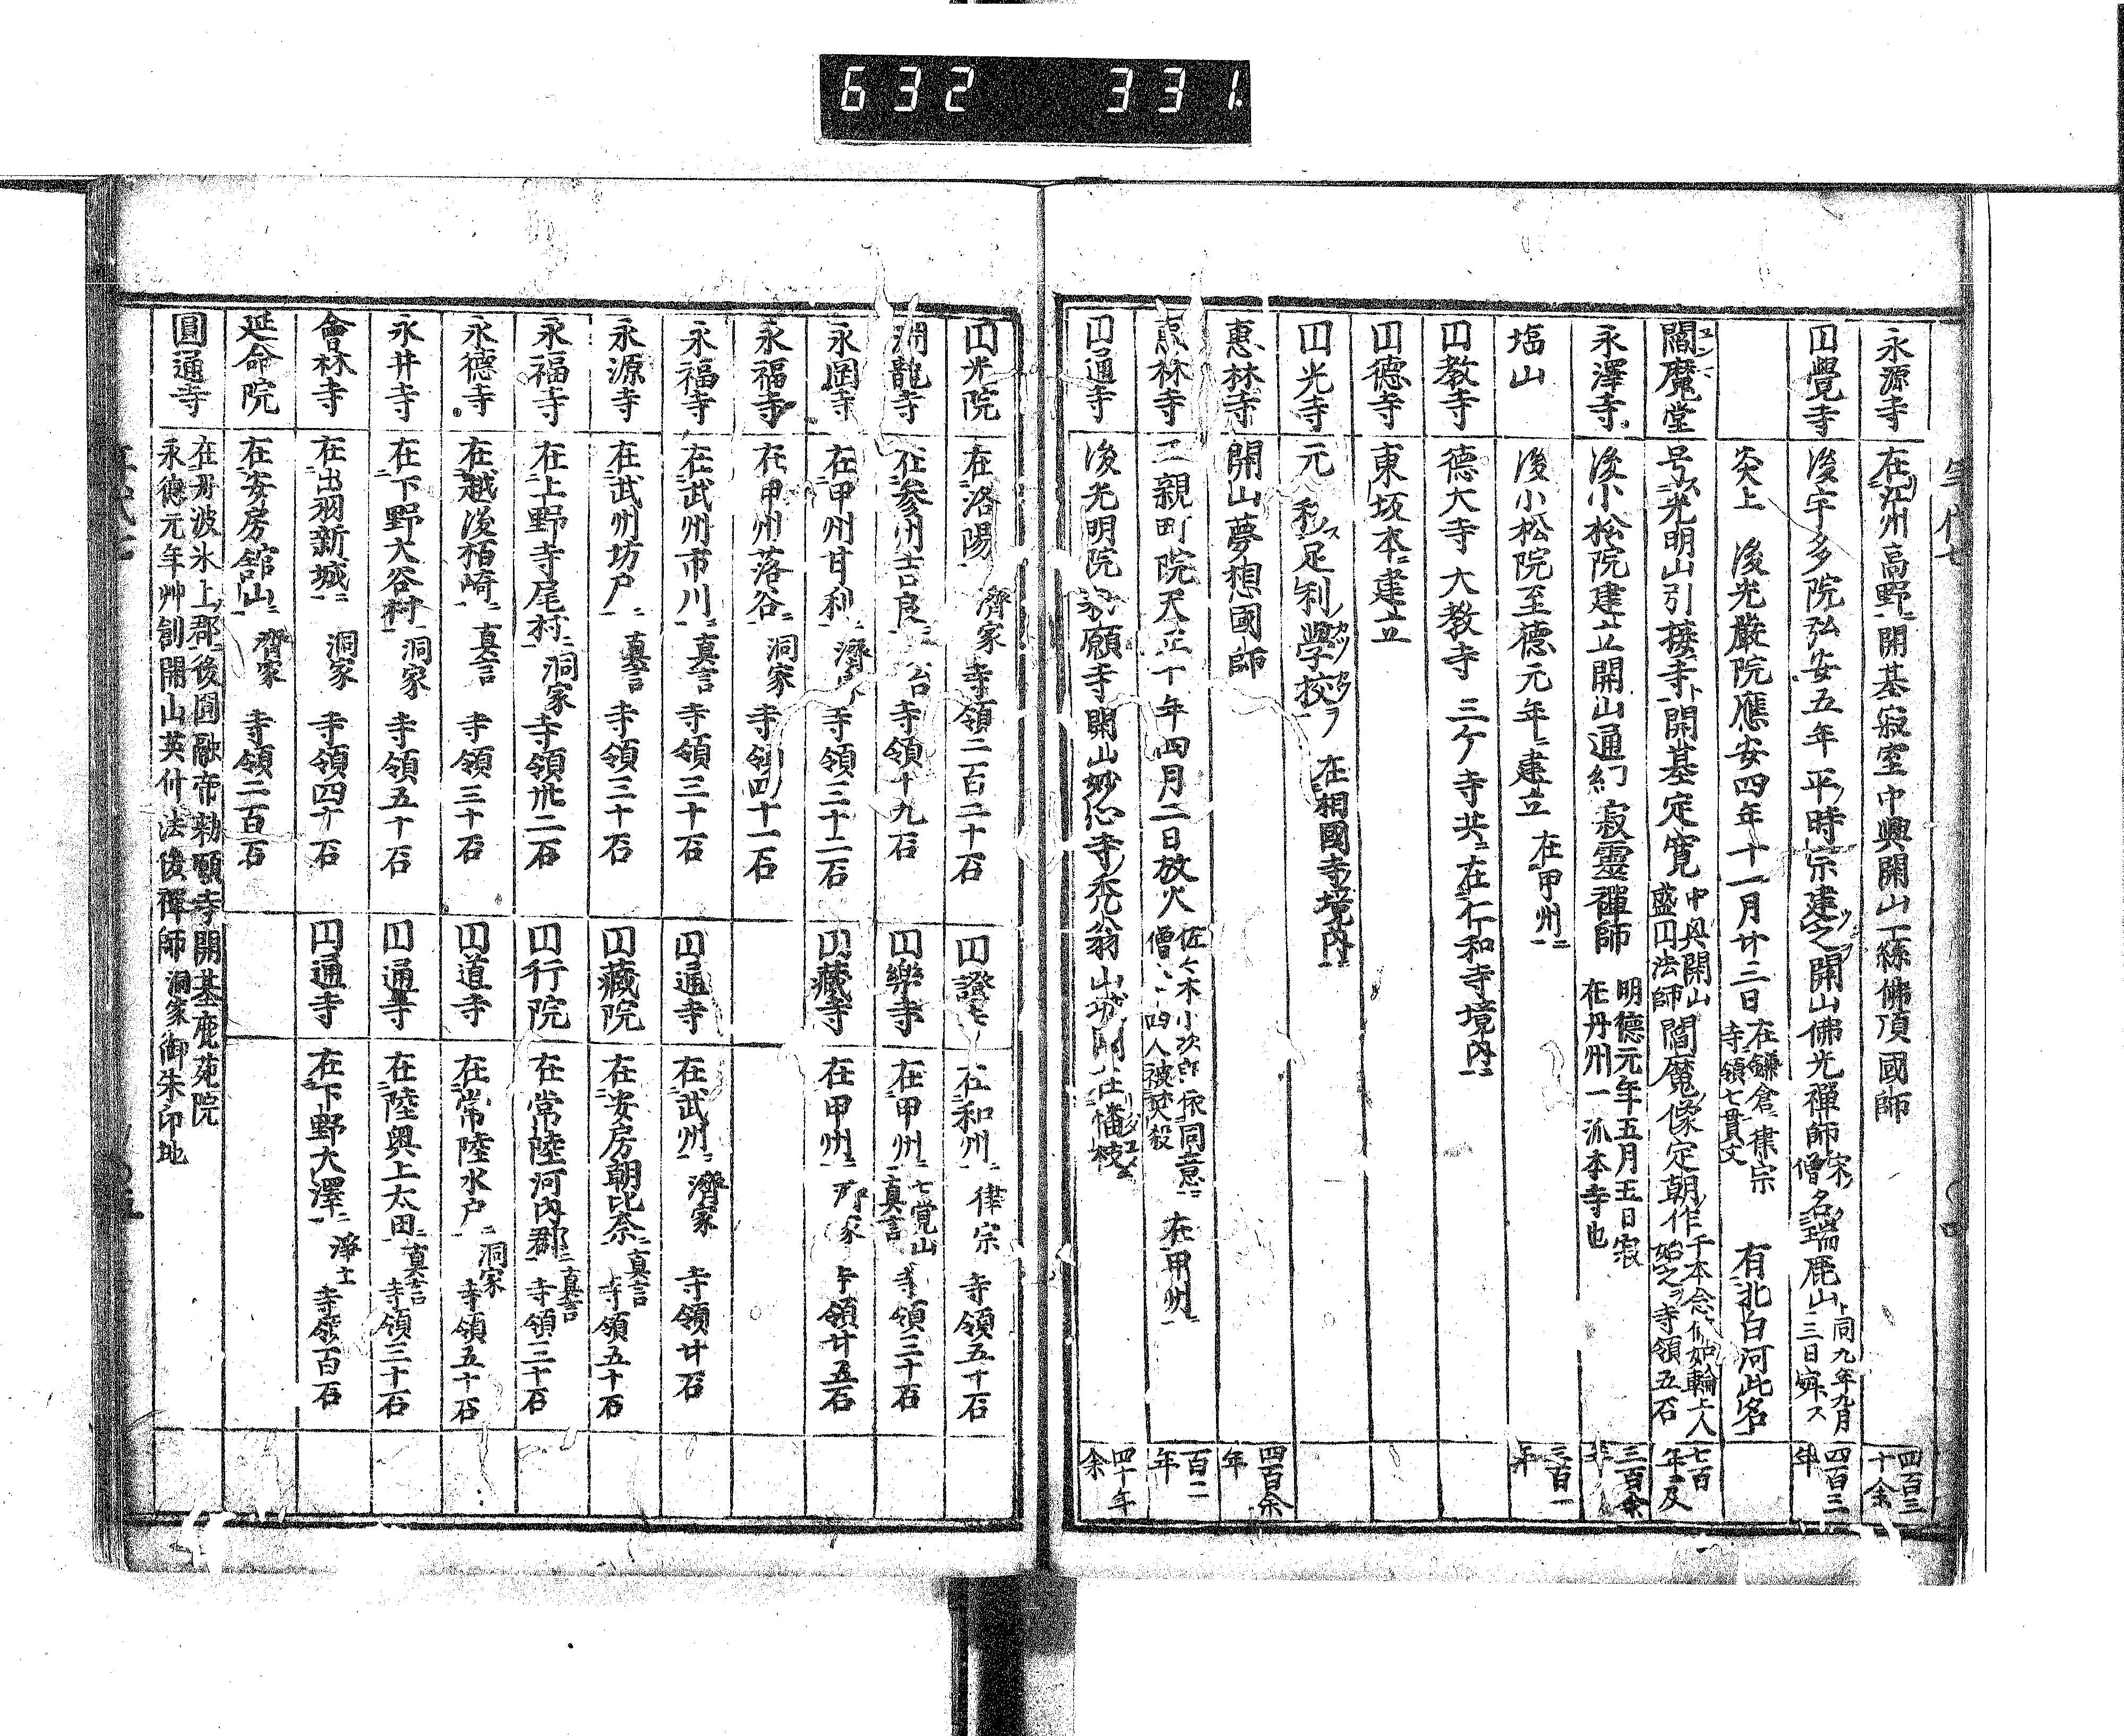 632 331
永源寺 在江州高野開基寂室中興開山一絲佛頂國師 四百三十余
囗覺寺 後宇多院弘安五年平時宗建之開山佛光禪師宋僧名瑞鹿山同九年九月三日寂ス 四百三年
炎上 後光嚴院應安四年十一月廿三日 在鎌倉律宗寺領七貫文 有北白河此名
閻魔堂 号光明山引接寺開基定覚 中興開山盛囗法師 閻魔像定朝作千本念仏如輪上人始之 寺領五石 七百年及
永澤寺 後小松院建立開山通幻寂靈禪師 明德元年五月五日寂在丹州一派本寺也 三百余年
塩山 後小松院至德元年建立 在甲州 三百一年
囗教寺 德大寺 大教寺 三ケ寺共在仁和寺境内
囗德寺 東坂本建立
囗光寺 元 足利學校ヲ 在相國寺境内
惠林寺 開山夢想國師 四百余年
惠林寺 正親町院天正十年四月二日放火 佐々木小次郎依同意僧八十四人被焚殺 在甲州 百二年
囗通寺 後光明院 願寺開山妙心寺禿翁山城 在幡枝 四十年余
囗光院 在洛陽 濟家 寺領二百二十石 囗證寺 在和州 律宗 寺領五十石
淵龍寺 在參州吉良 台 寺領十九石 囗樂寺 在甲州 七覚山真言 寺領三十石
永岡寺 在甲州甘利 濟家 寺領三十二石 囗藏寺 在甲州 家 寺領廿五石
永福寺 在甲州落合 洞家 寺領四十一石
永福寺 在武州市川 真言 寺領三十石 囗通寺 在武州 濟家 寺領廿石
永源寺 在武州坊戸 真言 寺領三十石 囗藏院 在安房朝比奈 真言 寺領五十石
永福寺 在上野寺尾村 洞家 寺領卅二石 囗行院 在常陸河内郡 真言 寺領三十石
永德寺 在越後柏崎 真言 寺領三十石 囗道寺 在常陸水戸 洞家 寺領五十石
永井寺 在下野大谷村 洞家 寺領五十石 囗通寺 在陸奥上太田 真言 寺領三十石
會林寺 在出羽新城 洞家 寺領四十石 囗通寺 在下野大澤 淨土 寺領百石
延命院 在安房舘山 濟家 寺領二百石
圓通寺 在丹波氷上郡後圓融帝勅願寺開基鹿苑院
永德元年艸創開山英仲法俊禪師 洞家御朱印地